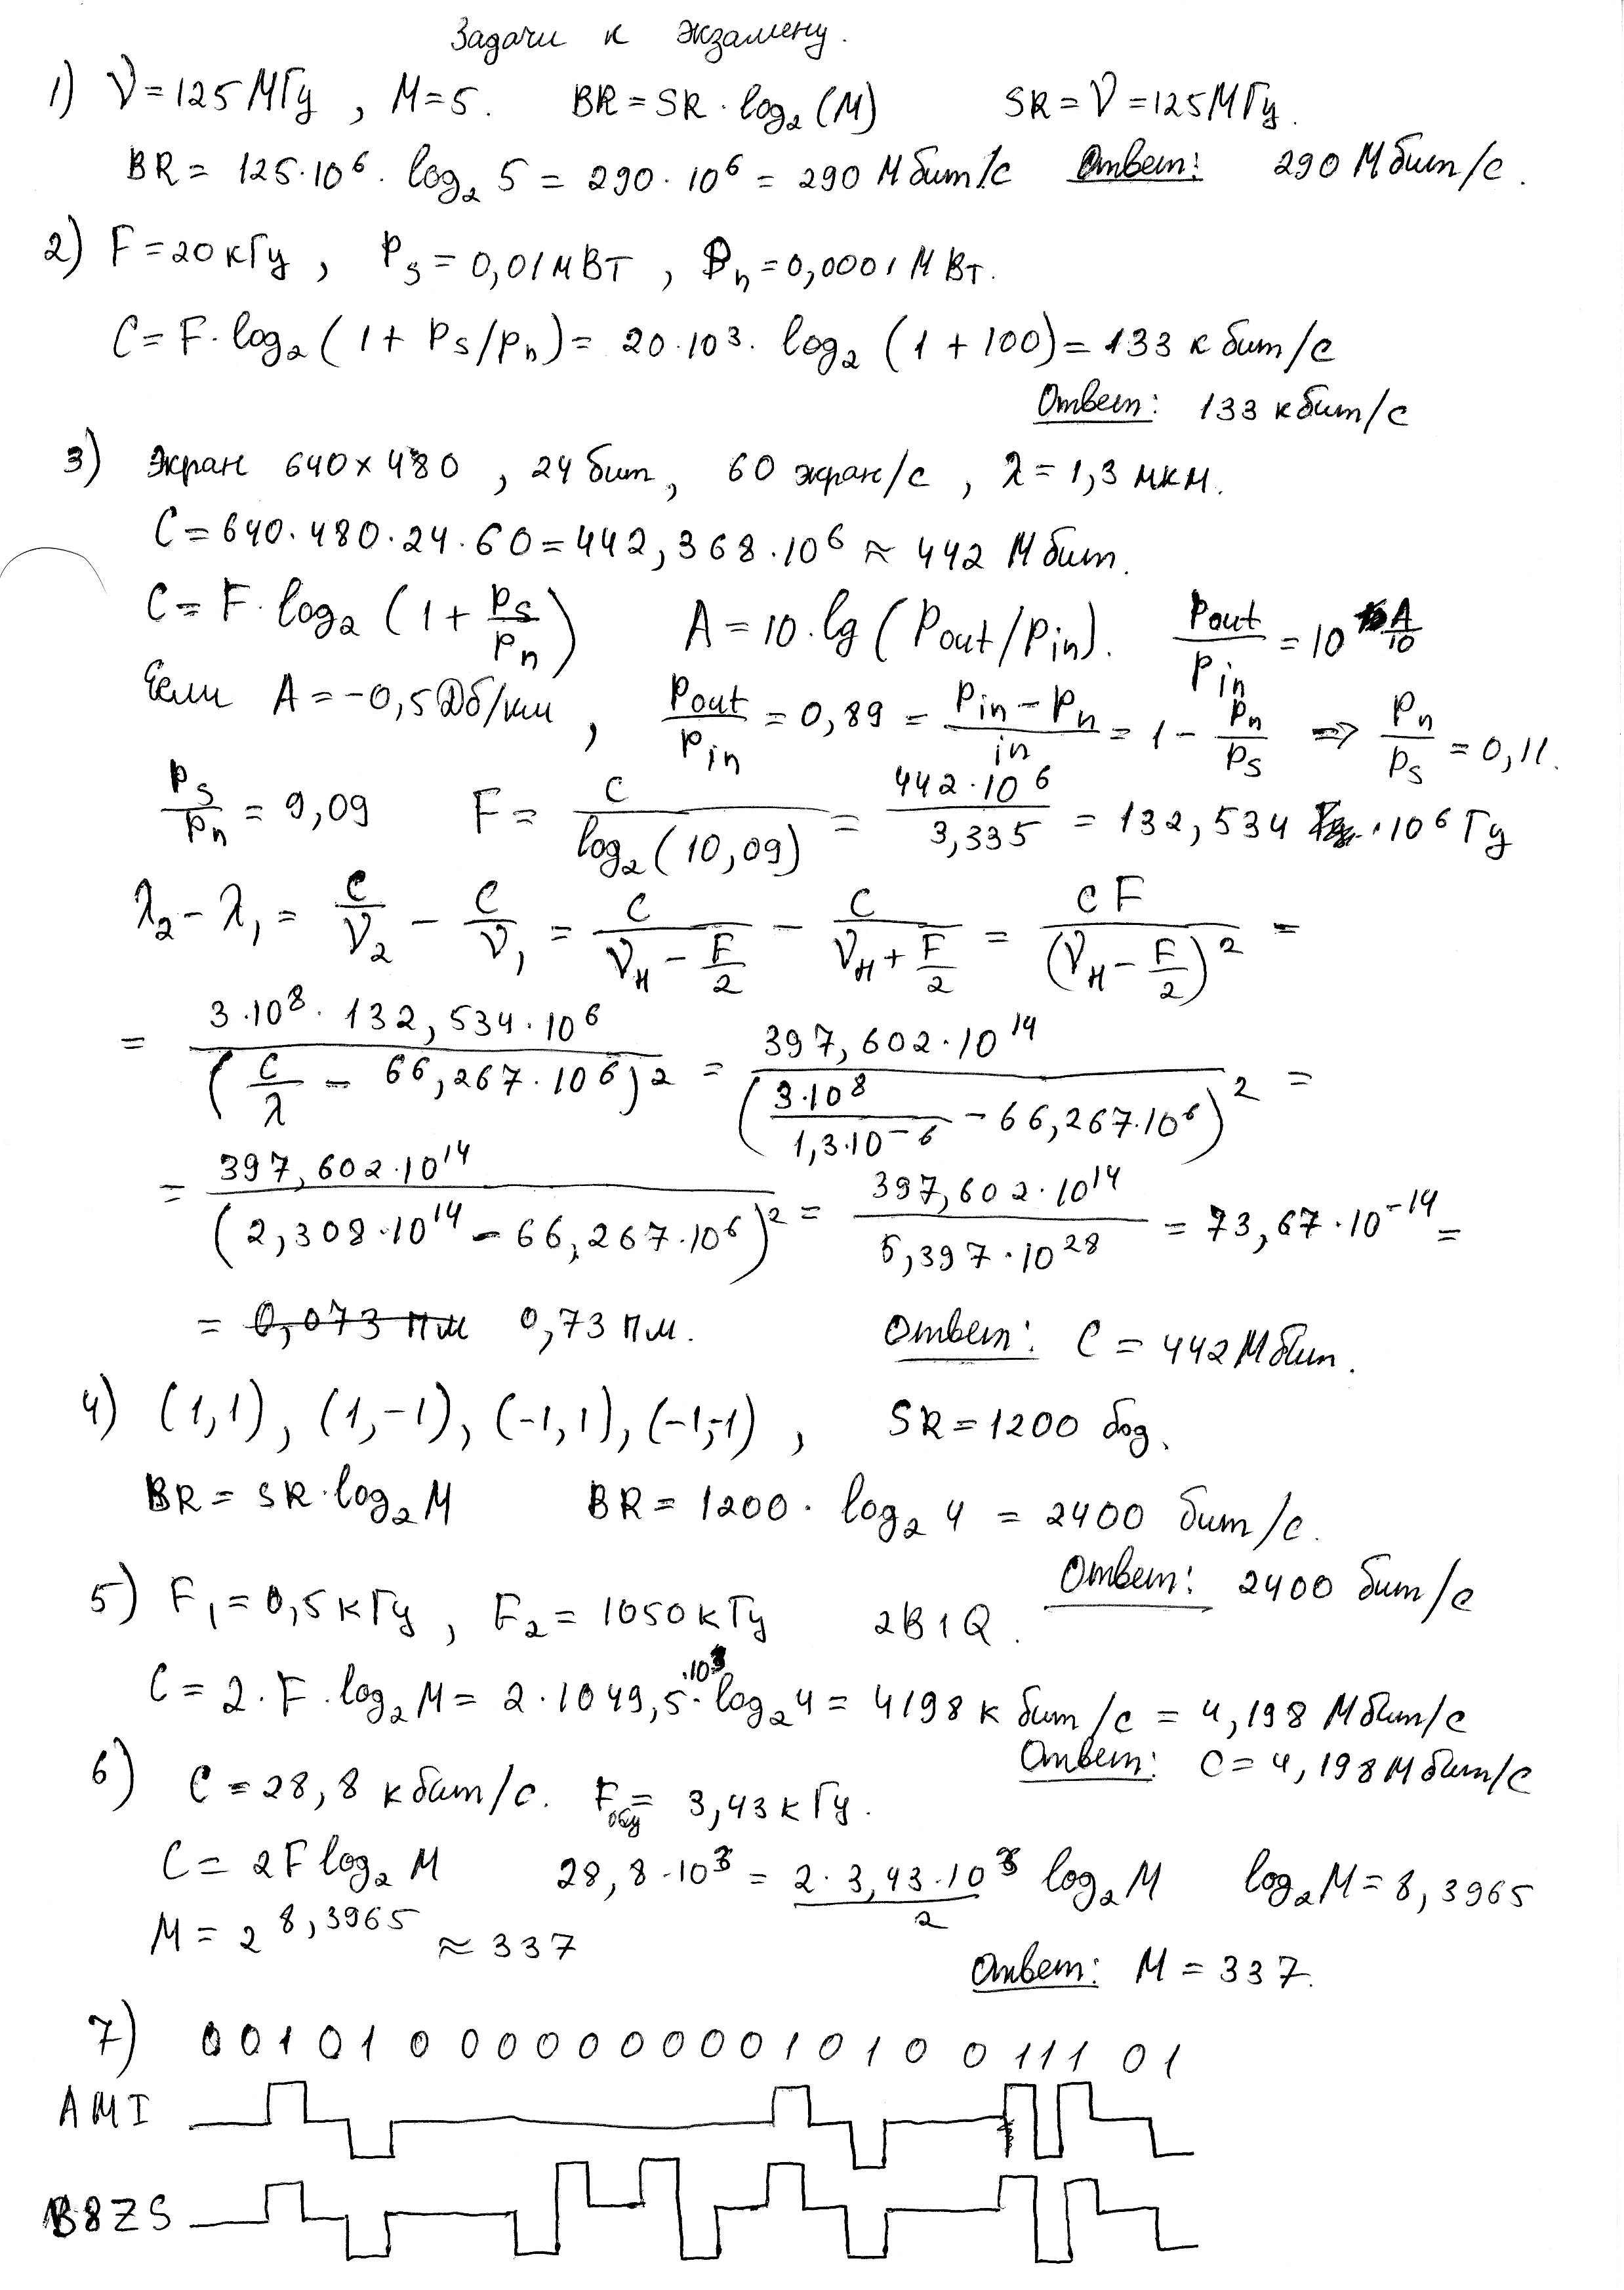 Задачи к экзамену.
1) ν = 125 МГц, M = 5. BR = SR · log₂(M) SR = ν = 125 МГц.
BR = 125·10⁶ · log₂ 5 = 290·10⁶ = 290 Мбит/с Ответ: 290 Мбит/с.
2) F = 20 кГц, Ps = 0,01 мВт, Pn = 0,0001 мВт.
C = F·log₂(1 + Ps/Pn) = 20·10³ · log₂(1 + 100) = 133 кбит/с
Ответ: 133 кбит/с
3) Экран 640×480, 24 бит, 60 экран/с, λ = 1,3 мкм.
C = 640·480·24·60 = 442,368·10⁶ ≈ 442 Мбит.
C = F·log₂(1 + Ps/Pn) A = 10·lg(Pout/Pin). Pout/Pin = 10^(A/10)
Если A = -0,5 Дб/км, Pout/Pin = 0,89 = (Pin - Pn)/in = 1 - Pn/Ps ⇒ Pn/Ps = 0,11.
Ps/Pn = 9,09 F = C/log₂(10,09) = 442·10⁶/3,335 = 132,534·10⁶ Гц
λ₂ - λ₁ = C/ν₂ - C/ν₁ = C/(νн - F/2) - C/(νн + F/2) = CF/(νн - F/2)² =
= 3·10⁸·132,534·10⁶/(C/λ - 66,267·10⁶)² = 397,602·10¹⁴/(3·10⁸/1,3·10⁻⁶ - 66,267·10⁶)² =
= 397,602·10¹⁴/(2,308·10¹⁴ - 66,267·10⁶)² = 397,602·10¹⁴/5,397·10²⁸ = 73,67·10⁻¹⁴ =
= 0,073 пм 0,73 пм. Ответ: C = 442 Мбит.
4) (1,1), (1,-1), (-1,1), (-1,-1), SR = 1200 бод.
BR = SR·log₂M BR = 1200 · log₂ 4 = 2400 бит/с.
Ответ: 2400 бит/с
5) F₁ = 0,5 кГц, F₂ = 1050 кГц 2B1Q.
C = 2·F·log₂M = 2·1049,5·10³·log₂4 = 4198 кбит/с = 4,198 Мбит/с
Ответ: C = 4,198 Мбит/с
6) C = 28,8 кбит/с. Fобщ = 3,43 кГц.
C = 2F log₂M 28,8·10³ = 2·3,43·10³/2 log₂M log₂M = 8,3965
M = 2^8,3965 ≈ 337
Ответ: M = 337.
7) 0 0 1 0 1 0 0 0 0 0 0 0 0 0 1 0 1 0 0 1 1 1 0 1
AMI
B8ZS